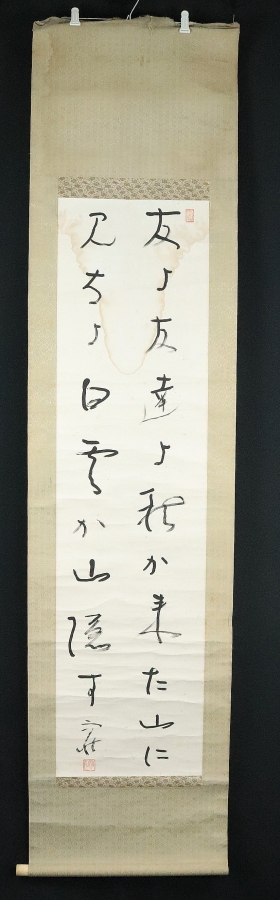 友よ友達よ秋か来た山に
見ろよ白雲か山隠す